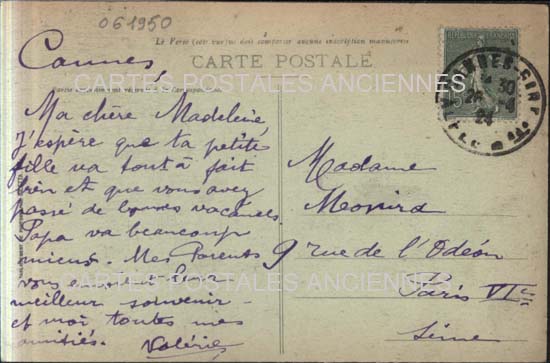 061950
Cannes
Le Verso (ou recto) doit comporter aucune inscription manuscrite
CARTE POSTALE
CARTES POSTALES ANCIENNES
Ma chère Madeleine
J'espère que ta petite
fille va tout à fait
bien et que vous avez
passé de bonnes vacances
Papa va beaucoup
mieux. Mes Parents
vous envoient leur
meilleur souvenir
et moi toutes mes
amitiés. Valérie
Madame
9 rue de l'Odéon
Paris VI
Seine
CARTES POSTALES ANCIENNES
REPUBLIQUE FRANÇAISE
15
CANNES
30
4
24